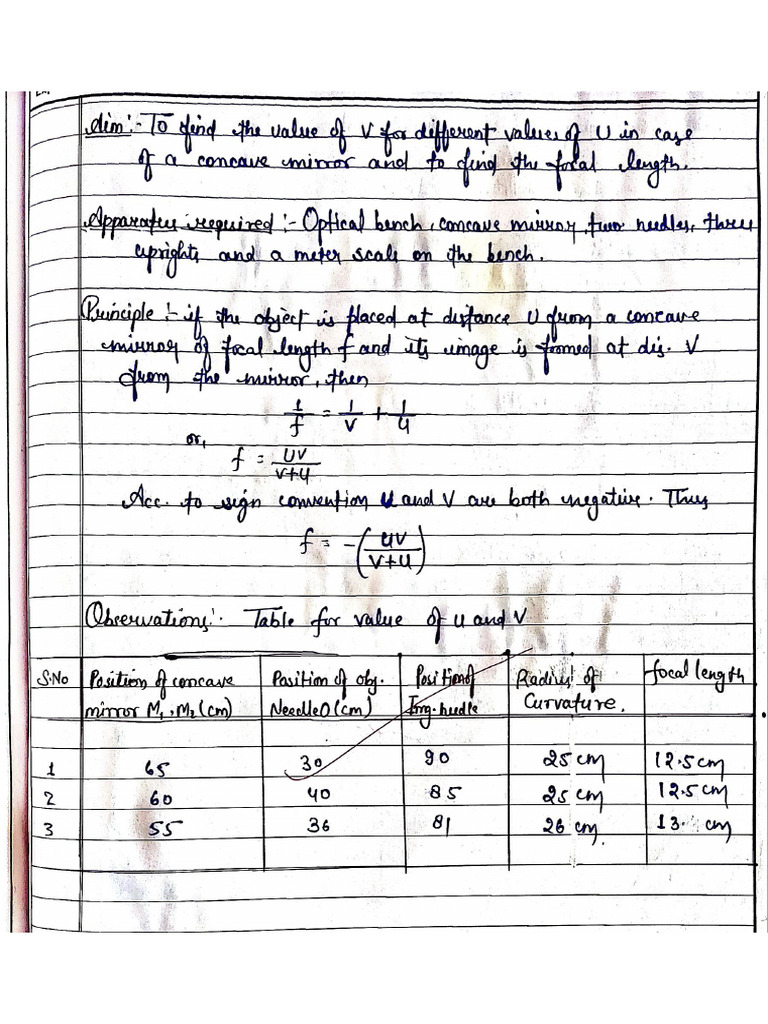 Aim:- To find the value of V for different values of U in case
of a concave mirror and to find the focal length.
Apparatus required:- Optical bench, concave mirror, two needles, three
uprights and a meter scale on the bench.
Principle:- if the object is placed at distance U from a concave
mirror of focal length f and its image is formed at dis. V
from the mirror, then
1/f = 1/V + 1/U
or,
f = UV/V+U
Acc. to sign convention U and V are both negative. Thus
f = -(UV/V+U)
Observations:- Table for value of U and V
S.No | Position of concave mirror M1, M2 (cm) | Position of obj. Needle O (cm) | Position of Img. needle | Radius of Curvature. | focal length
1 | 65 | 30 | 90 | 25 cm | 12.5 cm
2 | 60 | 40 | 85 | 25 cm | 12.5 cm
3 | 55 | 36 | 81 | 26 cm. | 13. cm